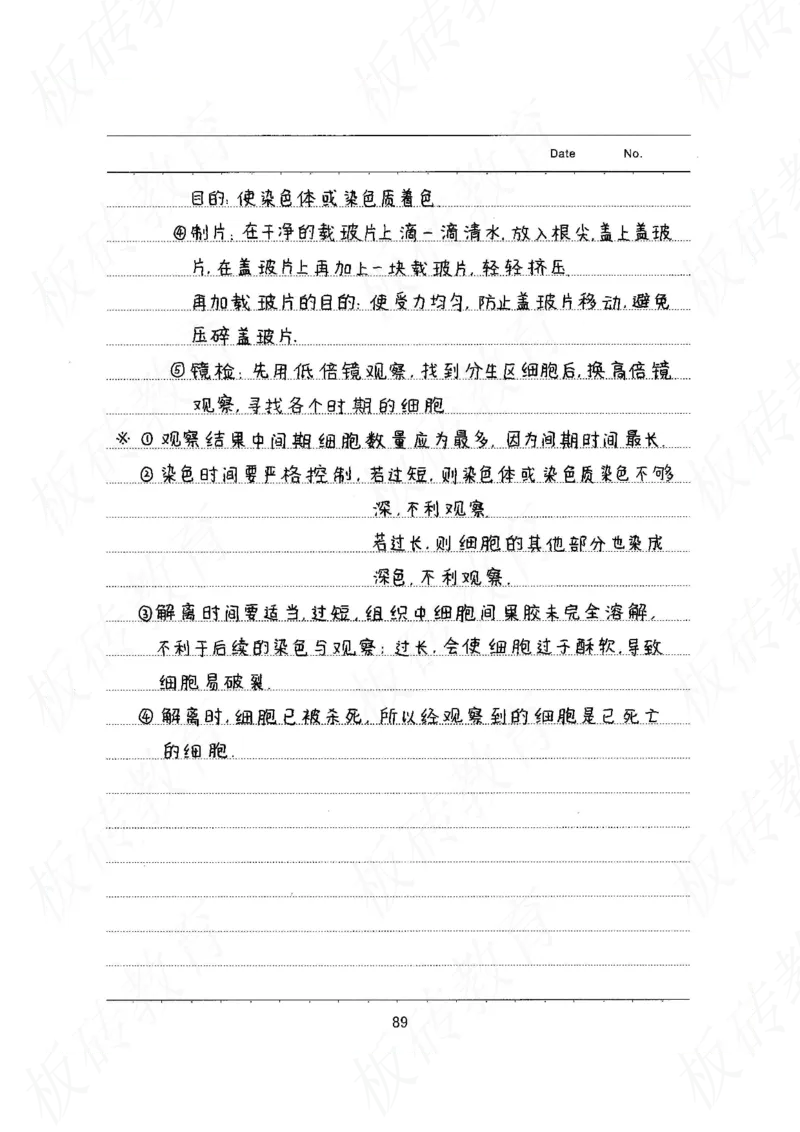 Date No.
目的: 使染色体或染色质着色.
④制片: 在干净的载玻片上滴一滴清水, 放入根尖, 盖上盖玻
片, 在盖玻片上再加上一块载玻片, 轻轻挤压.
再加载玻片的目的: 使受力均匀, 防止盖玻片移动, 避免
压碎盖玻片.
⑤镜检: 先用低倍镜观察, 找到分生区细胞后, 换高倍镜
观察, 寻找各个时期的细胞
※ ①观察结果中间期细胞数量应为最多, 因为间期时间最长.
②染色时间要严格控制, 若过短, 则染色体或染色质染色不够
深, 不利观察.
若过长, 则细胞的其他部分也染成
深色, 不利观察.
③解离时间要适当, 过短, 组织中细胞间果胶未完全溶解,
不利于后续的染色与观察; 过长, 会使细胞过于酥软, 导致
细胞易破裂.
④解离时, 细胞已被杀死, 所以经观察到的细胞是已死亡
的细胞.
89
板砖教育